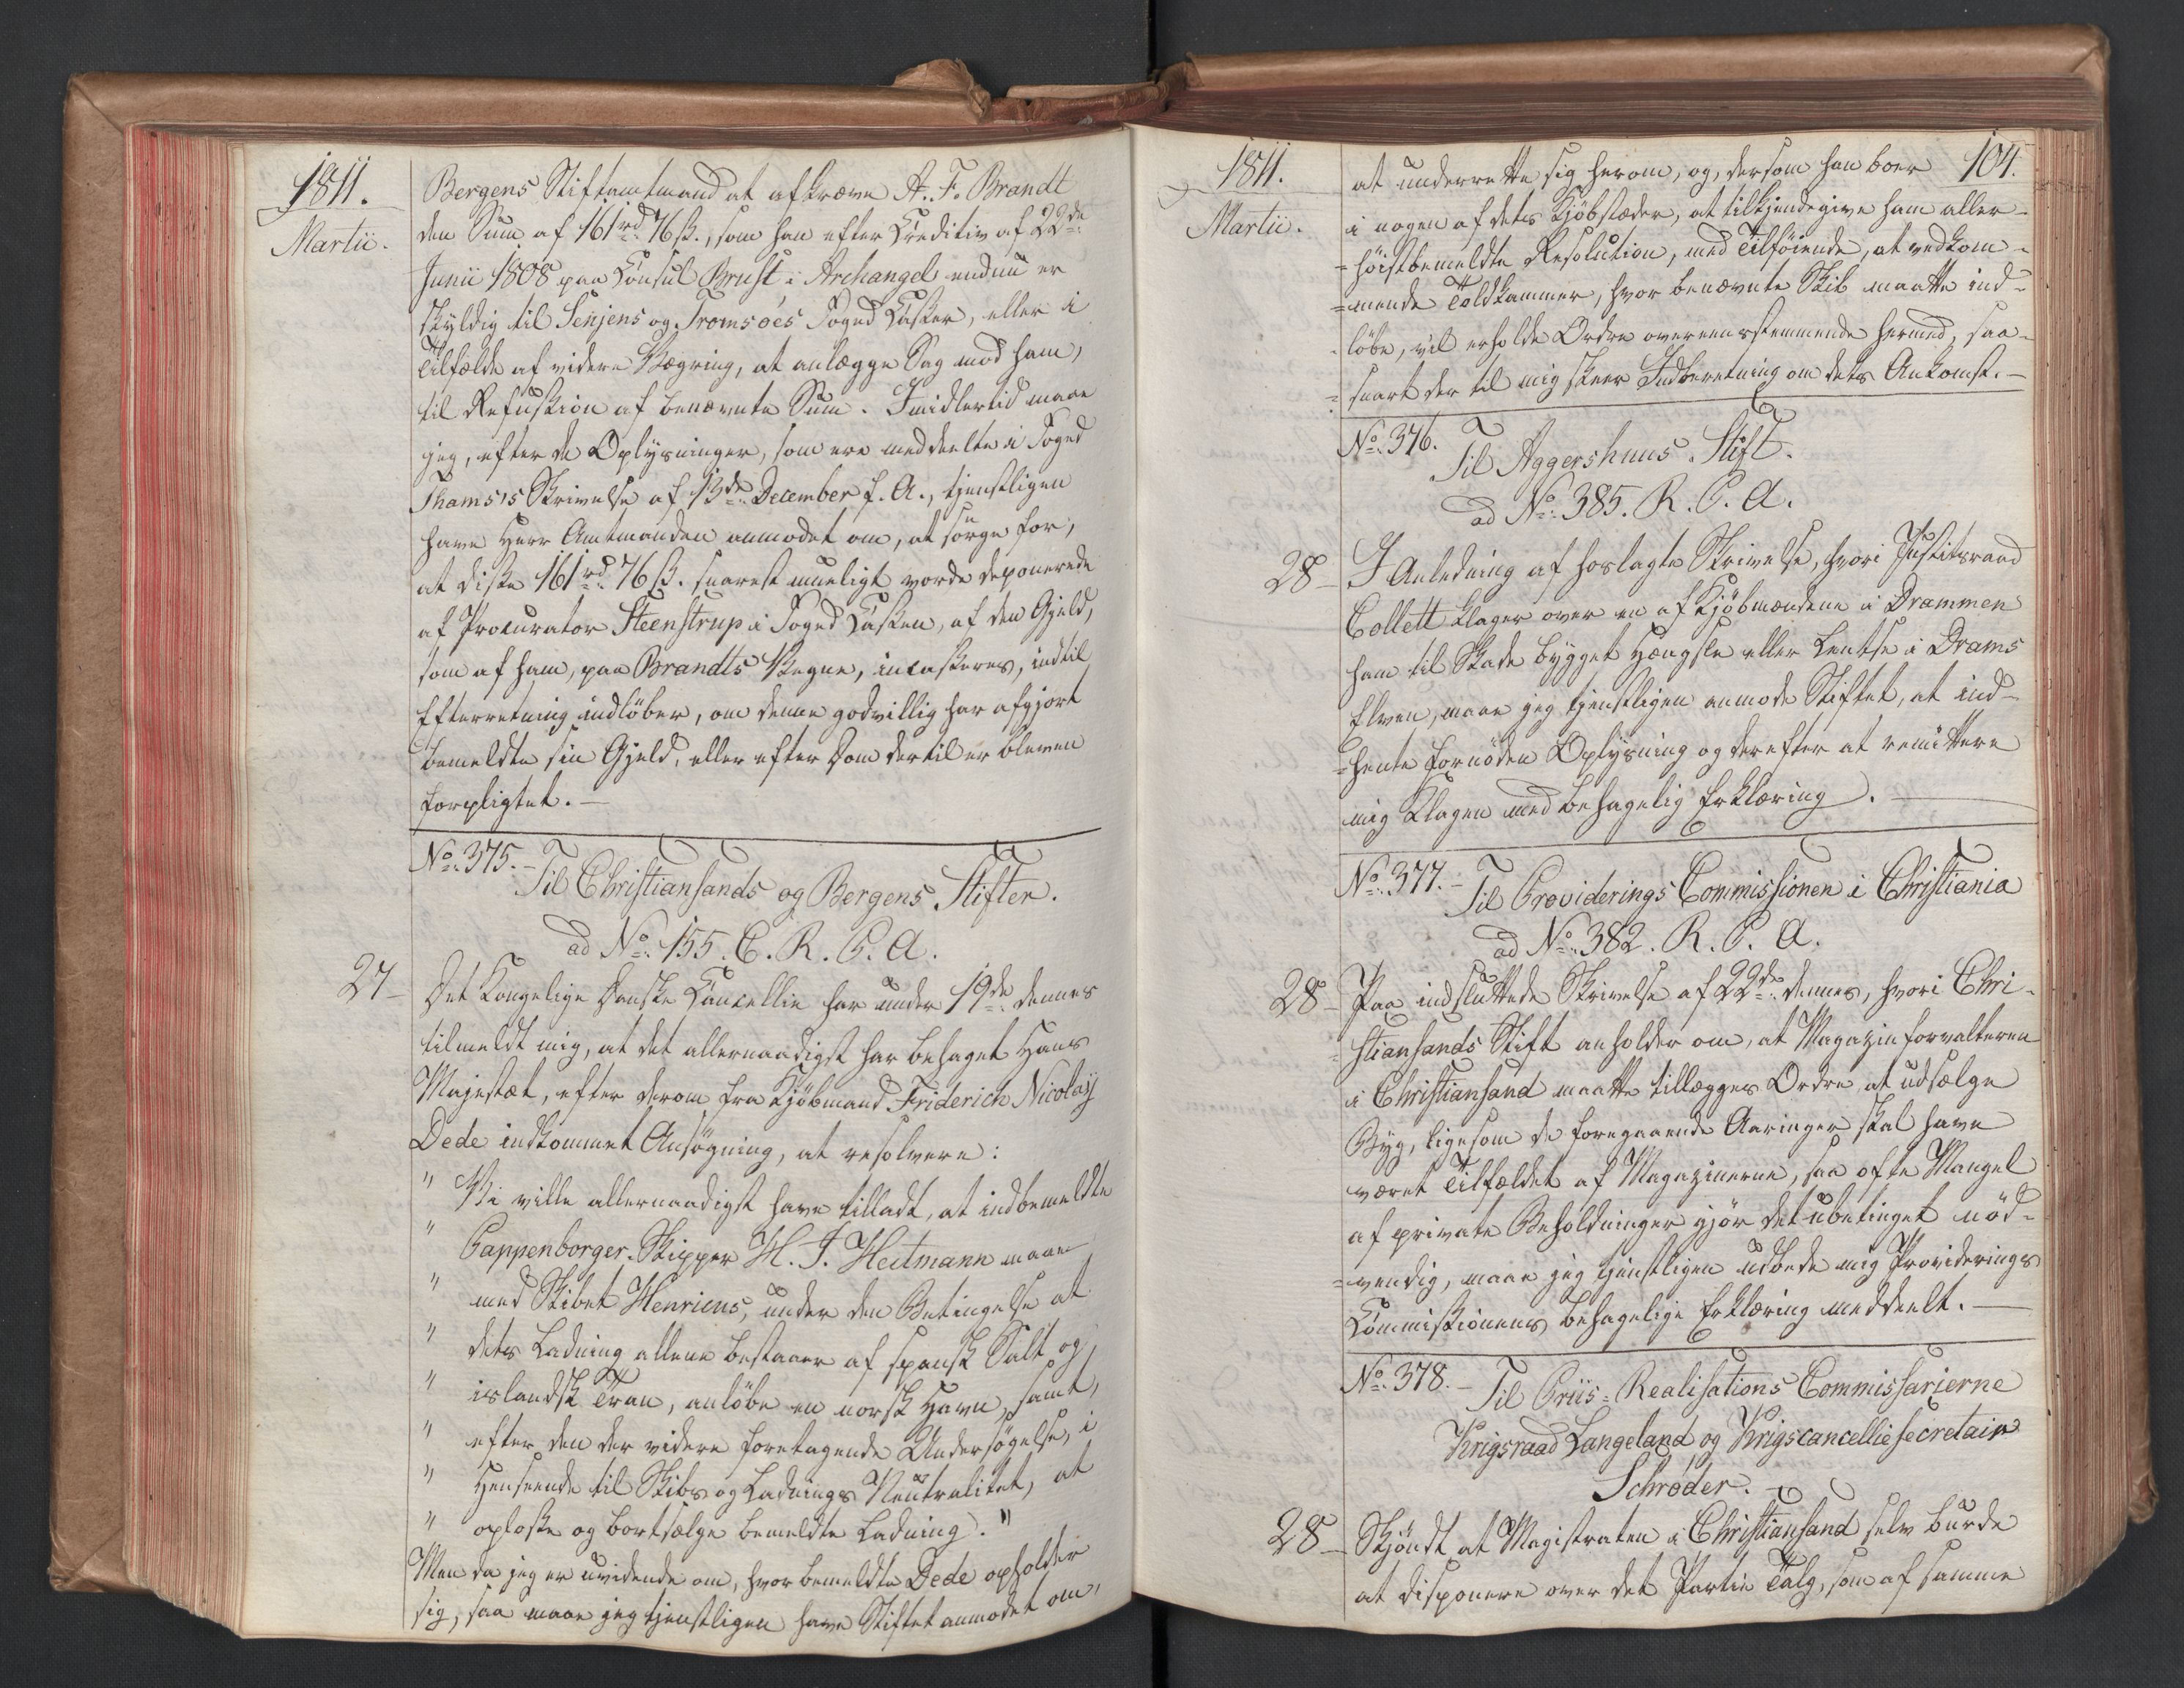 1811.
Martii.
Bergens Stiftamtmand at afkræve A. F. Brandt
den Sum af 161 rd. 76 ß., som han efter Creditiv af 22de
Junii 1808 paa Consul Brust i Archangel endnu er
skyldig til Senjens og Tromsöes Foged Casser, eller i
Tilfælde af videre Vægring, at anlægge Sag mod ham,
til Refusion af benævnte Sum. Imidlertid maae
jeg, efter de Oplysninger, som ere meddeelte i Foged
Thams's Skrivelse af 13de December f. A., tjenstligen
have Herr Amtmanden anmodet om, at sörge for,
at disse 161 rd. 76 ß. snarest mueligt vorde deponerede
af Procurator Steenstrup i Foged Cassen, af den Gjeld,
som af ham, paa Brandts Vegne, incasseres, indtil
Efterretning indlöber, om denne godvillig har afgjort
bemeldte sin Gjeld, eller efter Dom dertil er bleven
forpligtet. —
No. 375. – Til Christiansands og Bergens Stifter.
ad No. 155. C. R. P. A.
27 – Det Kongelige Danske Cancellie har under 19de dennes
tilmeldt mig, at det allernaadigst har behaget Hans
Majestæt, efter derom fra Kjöbmand Friderich Nicolaÿ
Dede indkommet Ansögning, at resolvere:
" Vi ville allernaadigst have tilladt, at indbemeldte
" Pappenborger-Skipper H. J. Heitmann maae
" med Skibet Henricus, under den Betingelse at
" dets Ladning allene bestaaer af spansk Salt og
" islandsk Tran, anlöbe en norsk Havn, samt,
" efter den der videre foretagende Undersögelse, i
" Henseende til Skibs og Ladnings Neutralitet, at
" oplosse og bortsælge bemeldte Ladning."
Men da jeg er uvidende om, hvor bemeldte Dede opholder
sig, saa maae jeg tjenstligen have Stiftet anmodet om,
1811.
Martii.
104.
at underrette sig herom, og, dersom han boer
i nogen af dets Kjöbstæder, at tilkjendegive ham aller-
=höistbemeldte Resolution, med Tilföiende, at vedkom-
=mende Toldkammer, hvor benævnte Skib maatte ind-
=löbe, vil erholde Ordre overeensstemmende hermed, saa-
=snart der til mig skeer Indberetning om dets Ankomst. —
No. 376. Til Aggershuus Stift.
ad No. 385. R. P. A.
28 – I Anledning af hoslagte Skrivelse, hvori Justitsraad
Collett klager over en af Kjöbmændene i Drammen
ham til Skade bygget Hængsle eller Lentse i Drams
Elven, maae jeg tjenstligen anmode Stiftet, at ind-
=hente fornöden Oplysning og derefter at remittere
mig Klagen med behagelig Erklæring. —
No. 377. – Til Provideerings Commissionen i Christiania
ad No. 382. R. P. A.
28 – Paa indsluttede Skrivelse af 22de dennes, hvori Chri-
=stiansands Stift anholder om, at Magazinforvalteren
i Christiansand maatte tillægges Ordre at udsælge
Byg, ligesom de foregaaende Aaringer skal have
været Tilfældet af Magazinerne, saa ofte Mangel
af private Beholdninger gjör det ubetinget nöd-
=vendig, maae jeg tjenstligen udbede mig Provideerings
Commissionens behagelige Erklæring meddeelt. —
No. 378. – Til Priis-Realisations Commissarierne
Krigsraad Langeland og Krigscancelliesecretair
Schrøder. –
28 – Skjöndt at Magistraten i Christiansand selv burde
at disponere over det Partie Talg, som af samme